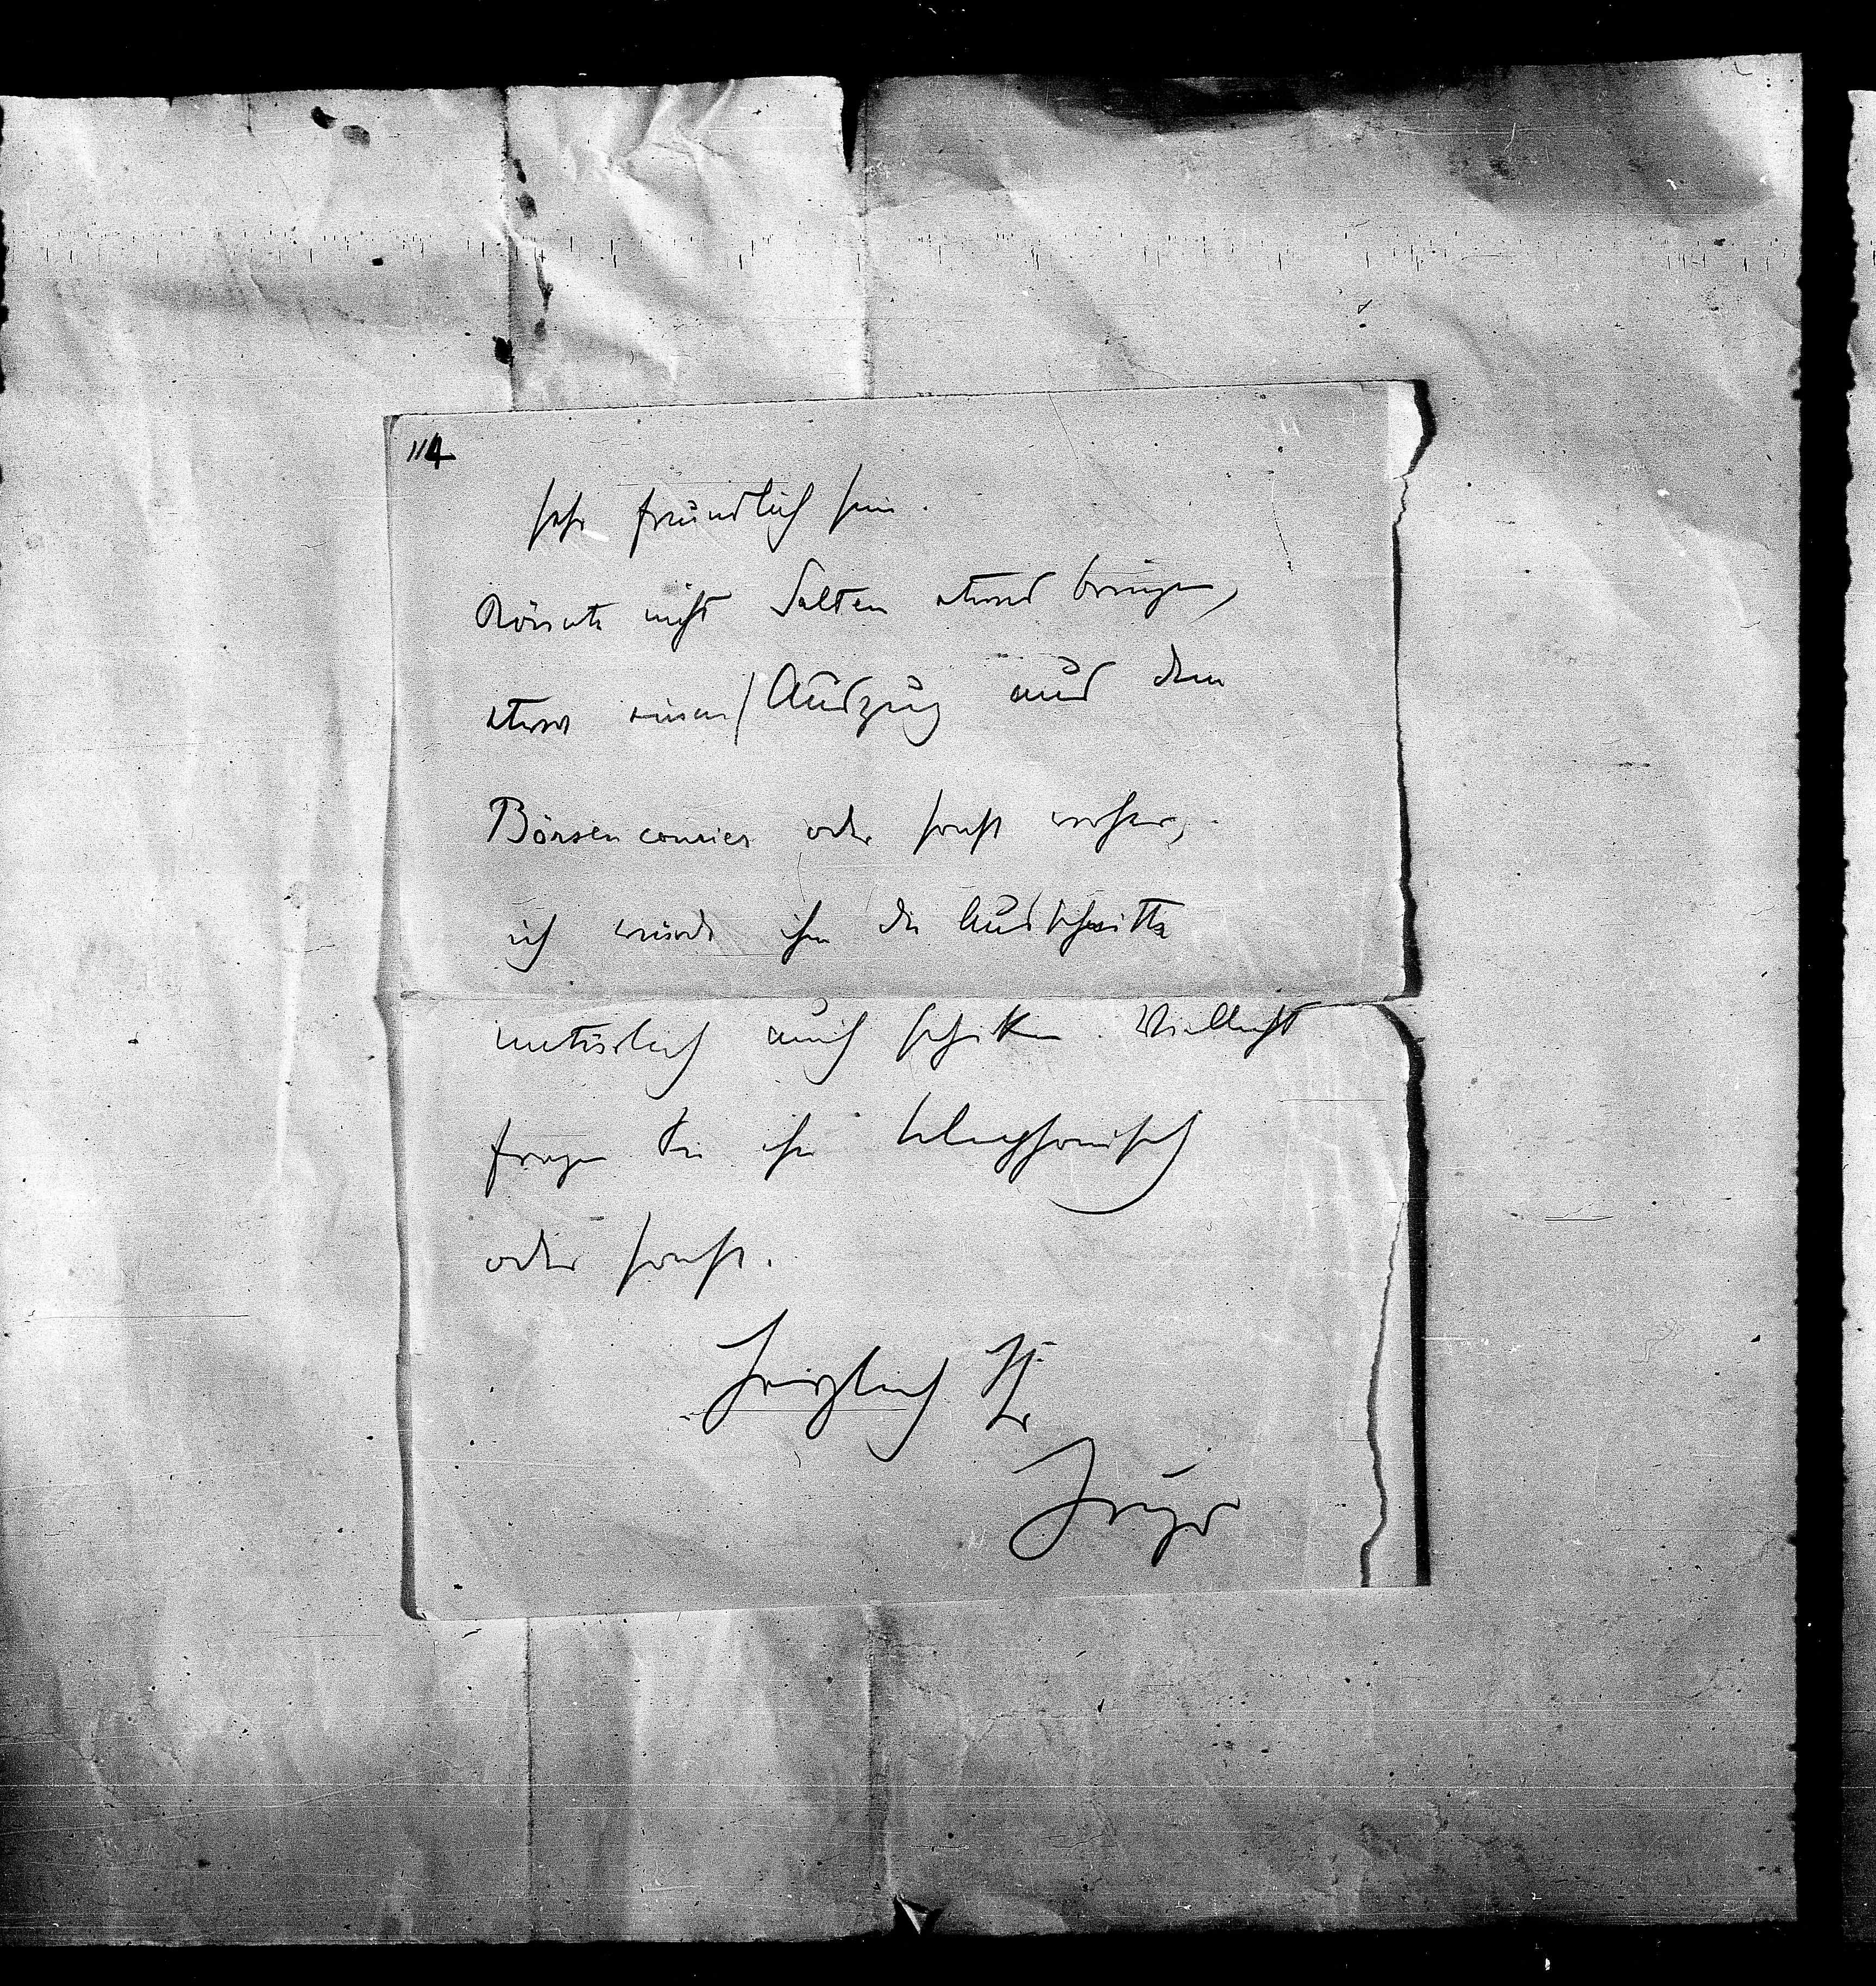 114
sehr freundlich sein.
Könnte nicht Salten etwas bringen,
etwa einen Auszug aus dem
Börsencourier oder sonst woher,
ich würde ihm die Ausschnitte
natürlich auch schicken. Vielleicht
fragen Sie ihn telephonisch
oder sonst.
Herzlich Ihr
Hugo